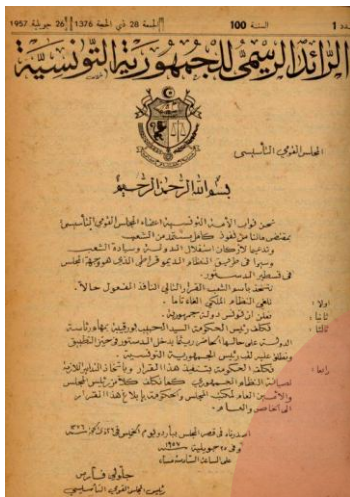 عدد 1 السنة 100 الجمعة 28 ذي الحجة 1376 26 جويلية 1957
الرائد الرسمي للجمهورية التونسية
المجلس القومي التأسيسي
بسم الله الرحمن الرحيم
نحن نواب الأمة التونسية أعضاء المجلس القومي التأسيسي
بمقتضى مالنا من نفوذ كامل مستمد من الشعب
وتدعيما لأركان استقلال الدولة وسيادة الشعب
وسيرا في طريق النظام الديمقراطي الذي هو وجهة المجلس
في تسطير الدستور
نتخذ باسم الشعب القرار التالي النافذ المفعول حالا.
أولا : نلغي النظام الملكي إلغاء تاما.
ثانيا : نعلن أن تونس دولة جمهورية.
ثالثا : نكلف رئيس الحكومة السيد الحبيب بورقيبة بمهام رئاسة
الدولة على حالها الحاضر ريثما يدخل الدستور في حيز التطبيق
ونطلق عليه لقب رئيس الجمهورية التونسية.
رابعا : نكلف الحكومة بتنفيذ هذا القرار وباتخاذ التدابير اللازمة
لصيانة النظام الجمهوري كما نكلف كلا من رئيس المجلس
والأمين العام لمكتب المجلس والحكومة بإبلاغ هذا القرار
إلى الخاص والعام.
أصدرناه في قصر المجلس بباردو يوم الخميس في
وفي ٢٥ جويلية ١٩٥٧
على الساعة السادسة مساء
جلولي فارس
رئيس المجلس القومي التأسيسي